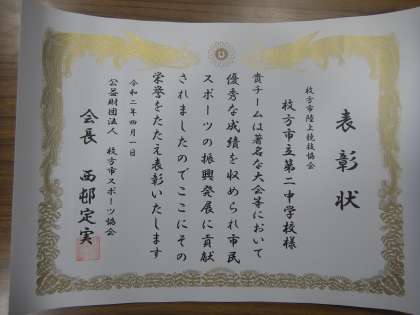 表彰状
枚方市陸上競技協会
枚方市立第二中学校様
貴チームは著名な大会等において
優秀な成績を収められ市民
スポーツの振興発展に貢献
されましたのでここにその
栄誉をたたえ表彰いたします
令和二年四月一日
公益財団法人 枚方市スポーツ協会
会長 西邨定実